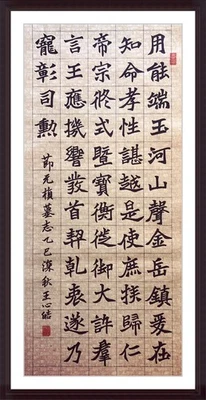 用能端玉河山聲金岳鎮爰在
知命孝性諶越是使庶族歸仁
帝宗攸式暨寶衡徙御大訊羣
言王應機響發首契乾衷遂乃
寵彰司勳
節元楨墓志乙巳深秋王心皓